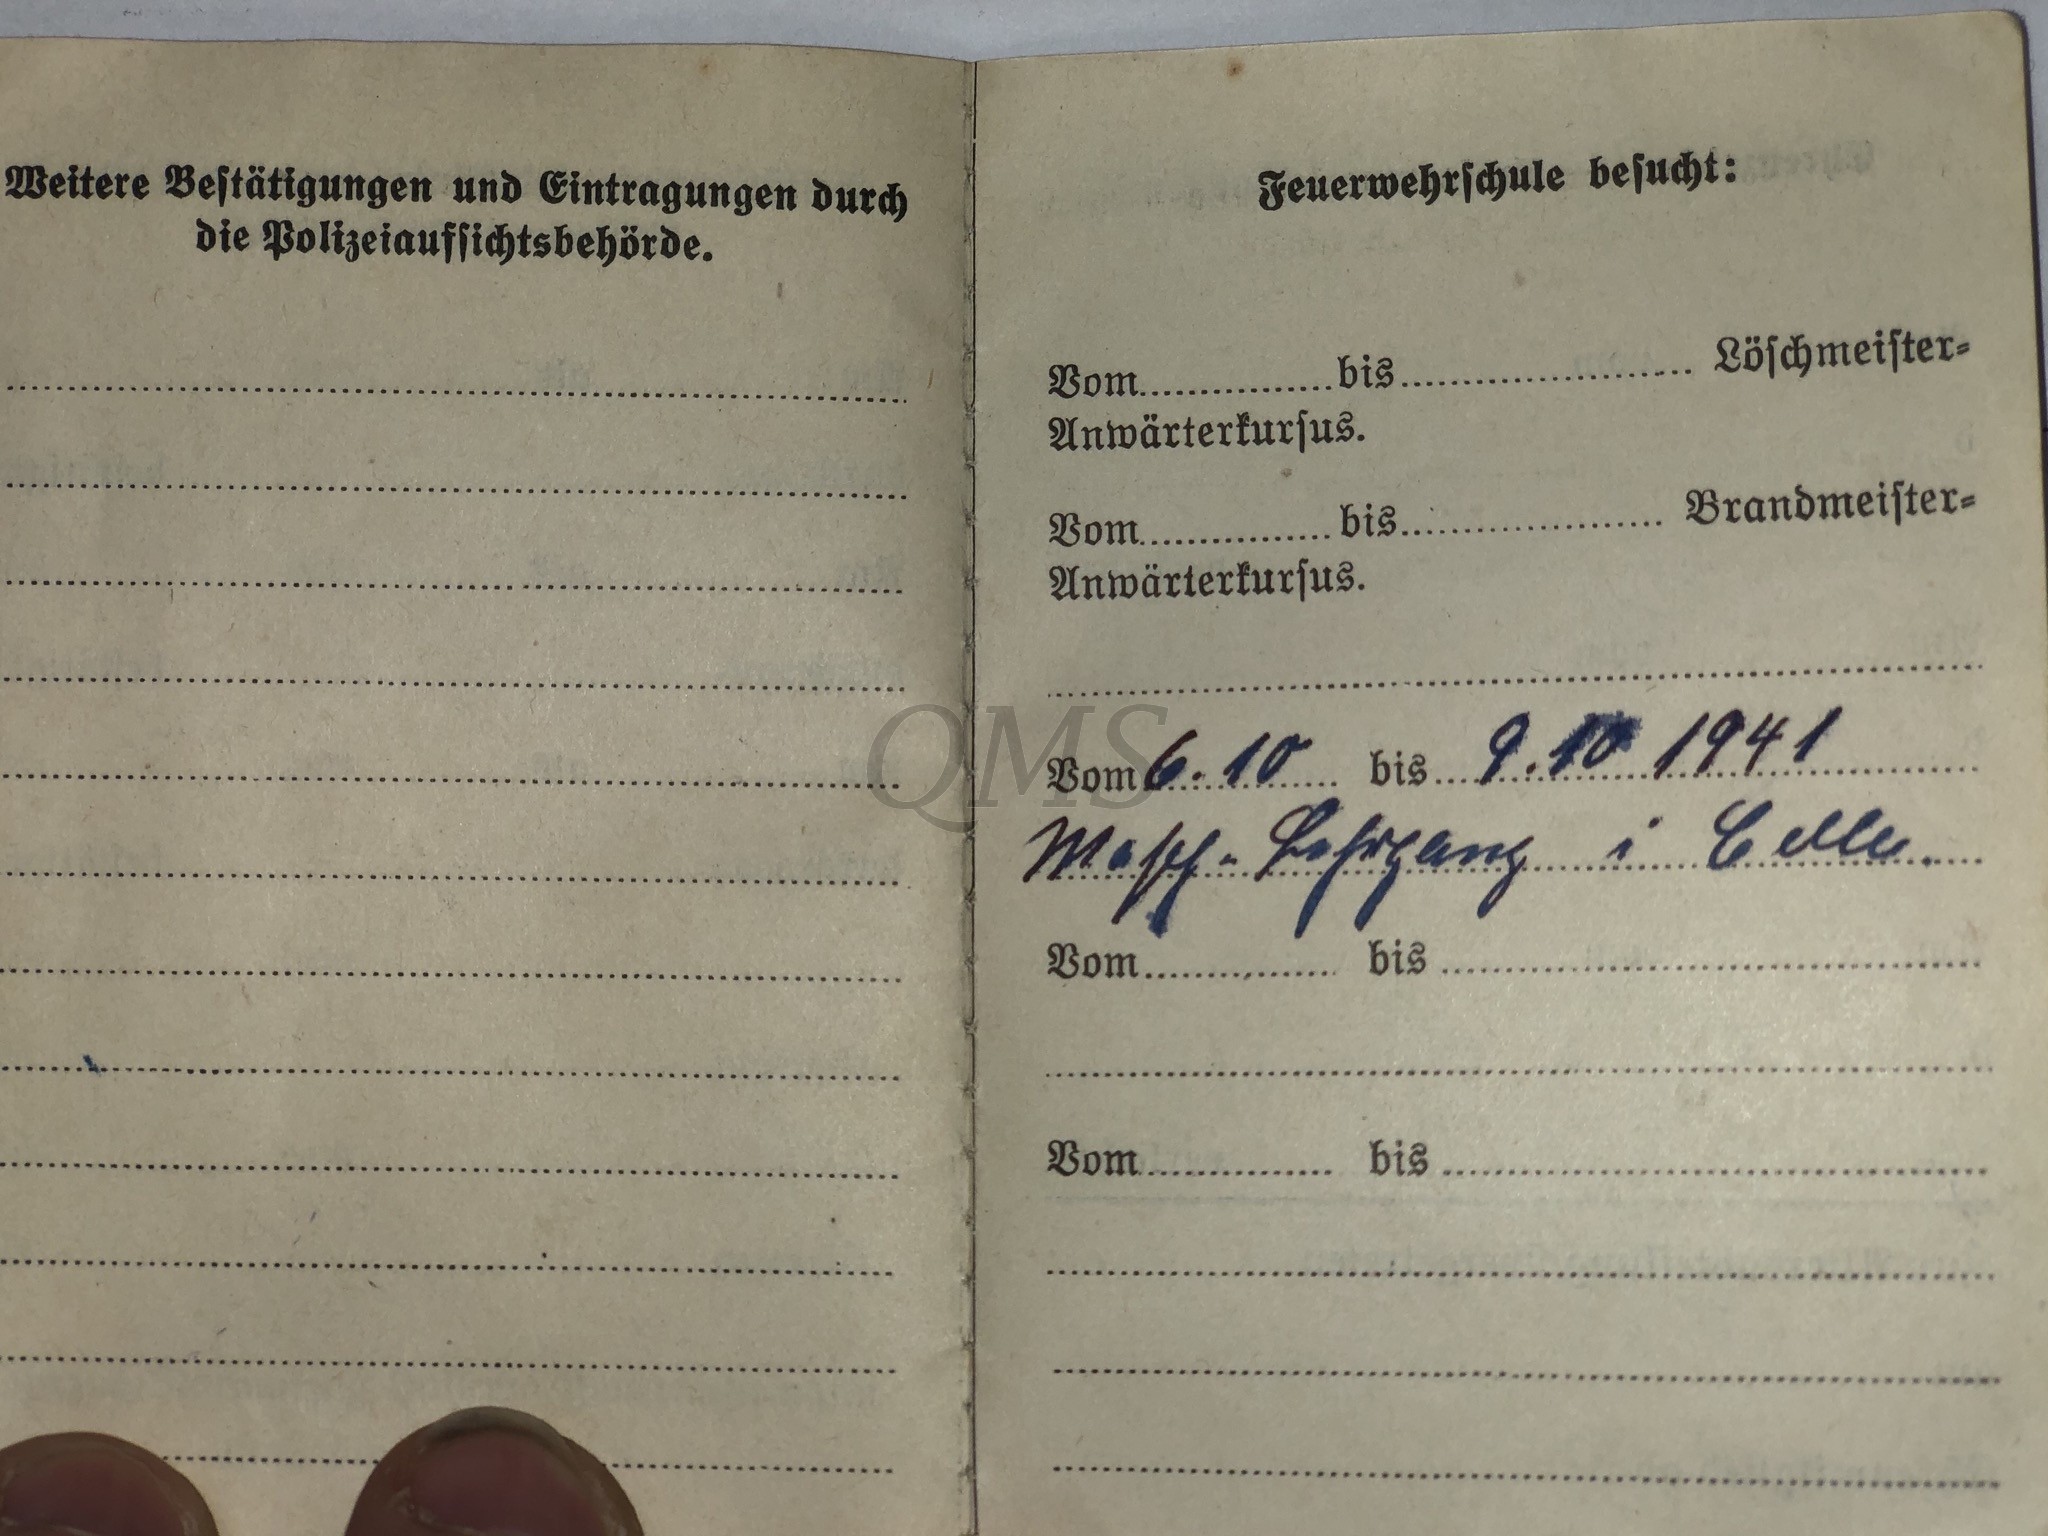 Weitere Bestätigungen und Eintragungen durch
die Polizeiaufsichtsbehörde.
Feuerwehrschule besucht:
Vom bis Löschmeister-
Anwärterkursus.
Vom bis Brandmeister-
Anwärterkursus.
Vom 6.10 bis 9.10 1941
Masch- Lehrgang i Celle.
Vom bis
Vom bis
QMS